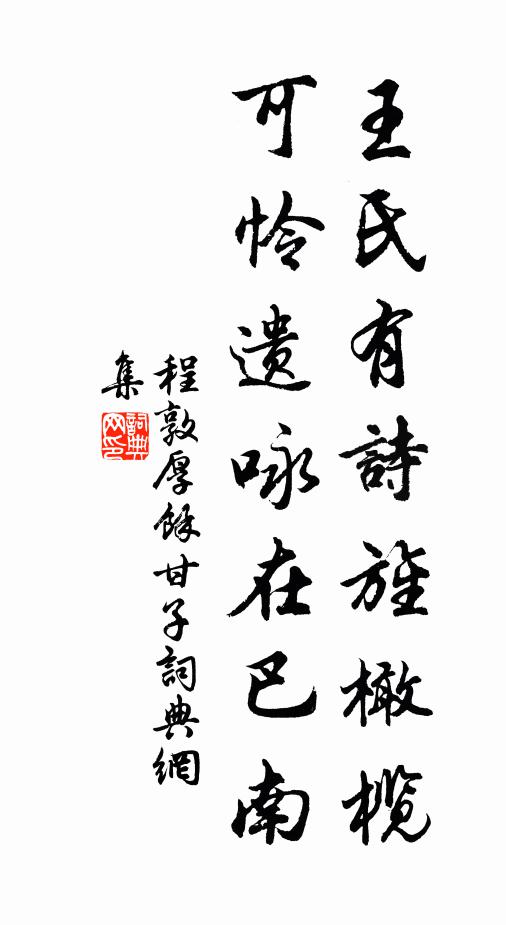 王氏有詩旌橄欖
可憐遺咏在巴南
程敦厚餘甘子詞典網
集
詞典网印